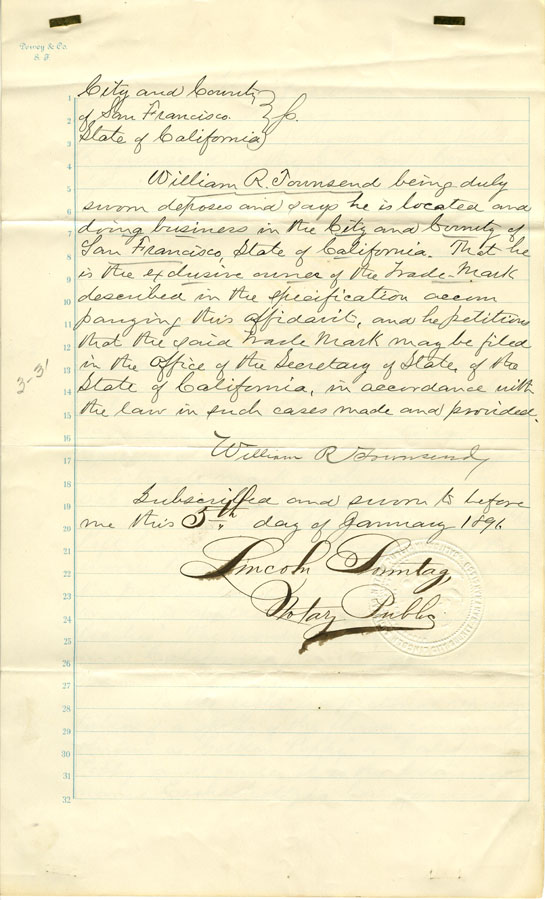 Dewey & Co.
S. F.
City and County
of San Francisco.
State of California
1
2
3
4
5
6
7
8
9
10
11
12
13
14
15
16
17
18
19
20
21
22
23
24
25
26
27
28
29
30
31
32
William R. Townsend being duly
sworn deposes and says he is located and
doing business in the City and County of
San Francisco, State of California. That he
is the exclusive owner of the Trade-Mark
described in the specification accom
panying this affidavit, and he petitions
that the said Trade Mark may be filed
in the Office of the Secretary of State, of the
State of California, in accordance with
the law in such cases made and provided.
3-31
William R Townsend
Subscribed and sworn to before
me this 5th day of January 189
Lincoln Sonntag,
Notary Public